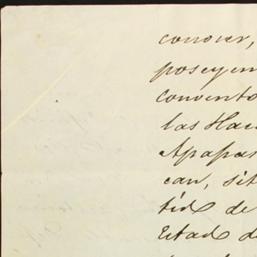 conocer,
poseyen
convento
las Hac
Apapas
can, sit
tid de
Estad d